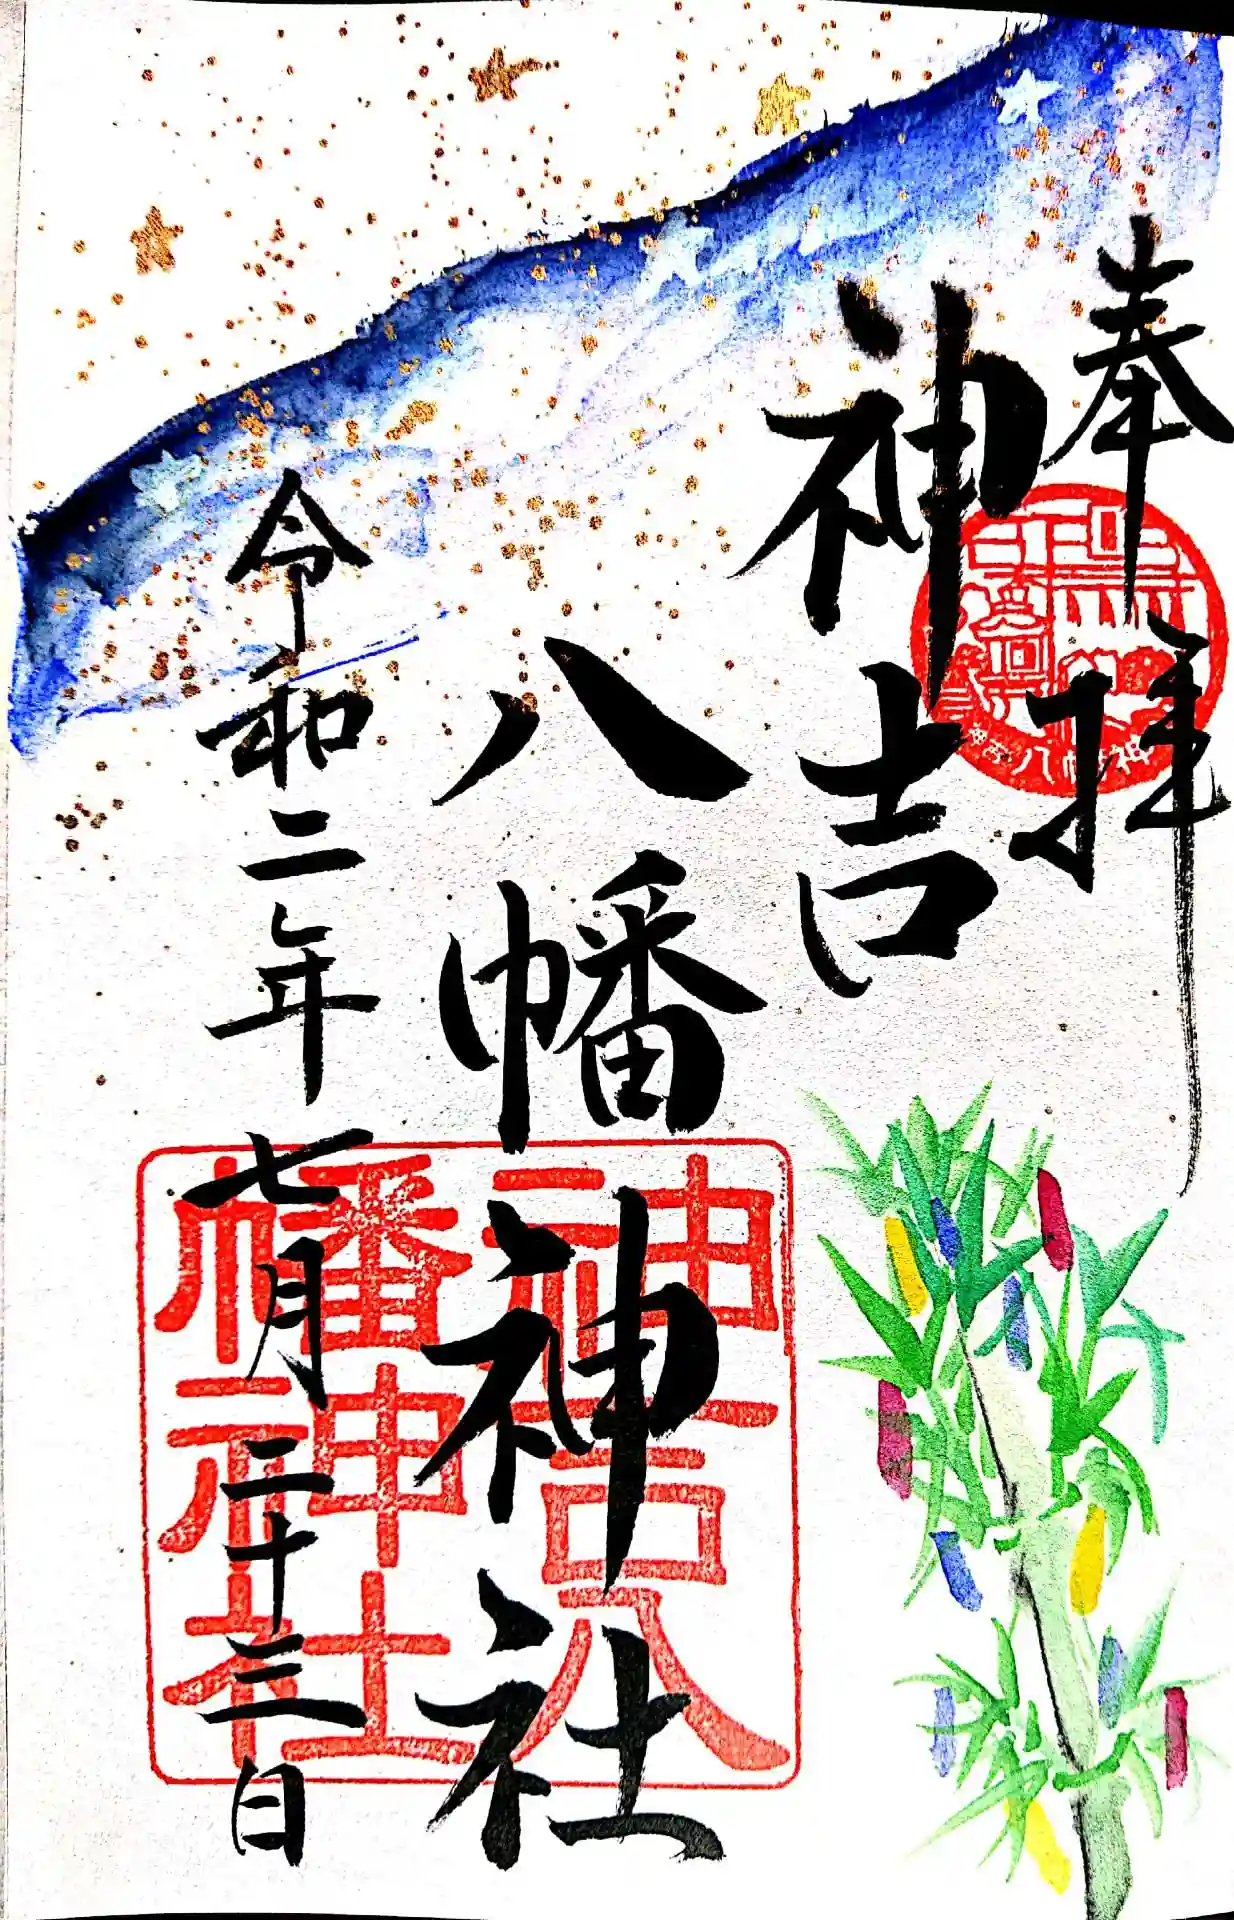 奉拝
神吉
八幡神社
令和二年七月二十三日
神吉八
幡神社
八幡神